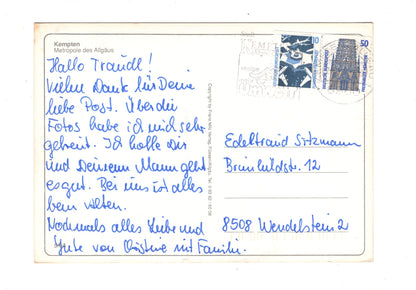 Kempten
Metropole des Allgäus
Hallo Traudl!
Vielen Dank für Deine
liebe Post. Über die
Fotos habe ich mich sehr
gefreut. Ich hoffe Dir
und Deinem Mann geht
es gut. Bei uns ist alles
beim alten.
Nochmals alles Liebe und
Gute von Christine mit Familie.
Edeltraud Sitzmann
Brunhildstr. 12
8508 Wendelstein 2
10
50